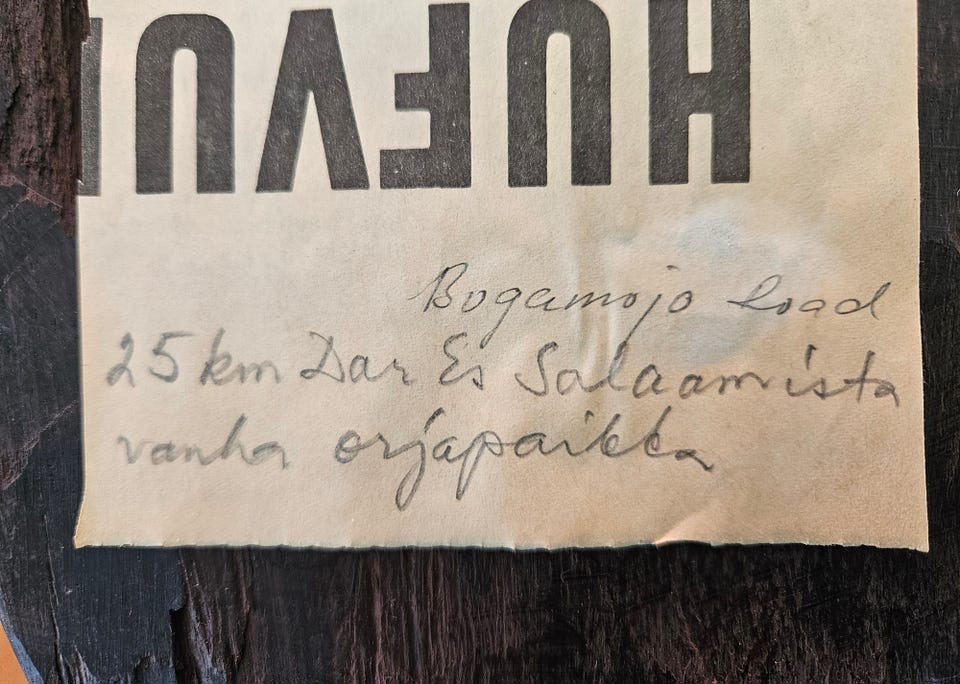 HUFVU
Bogamojo Road
25 km Dar Es Salaamista
vanha orjapaikka